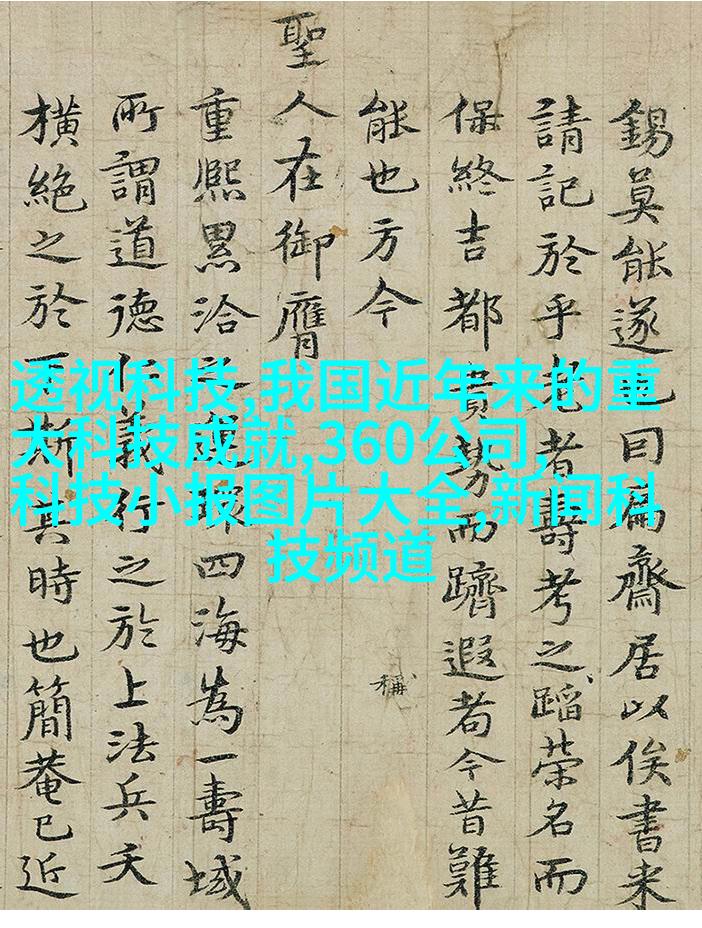 透视科技,我国近年来的重
大科技成就,360公司,
科技小报图片大全,新闻科
技频道
錫莫能遂曰扁齋居以俟書来
請記於乎老者壽考之蹈荣名而
保終吉都貴勢而躋遐耇今昔難
能也方今
稱
聖人在御膺
重熙累洽四海為一壽域
所謂道德仁義行之於上法兵夭
橫絶之於下斯其時也簡菴已近